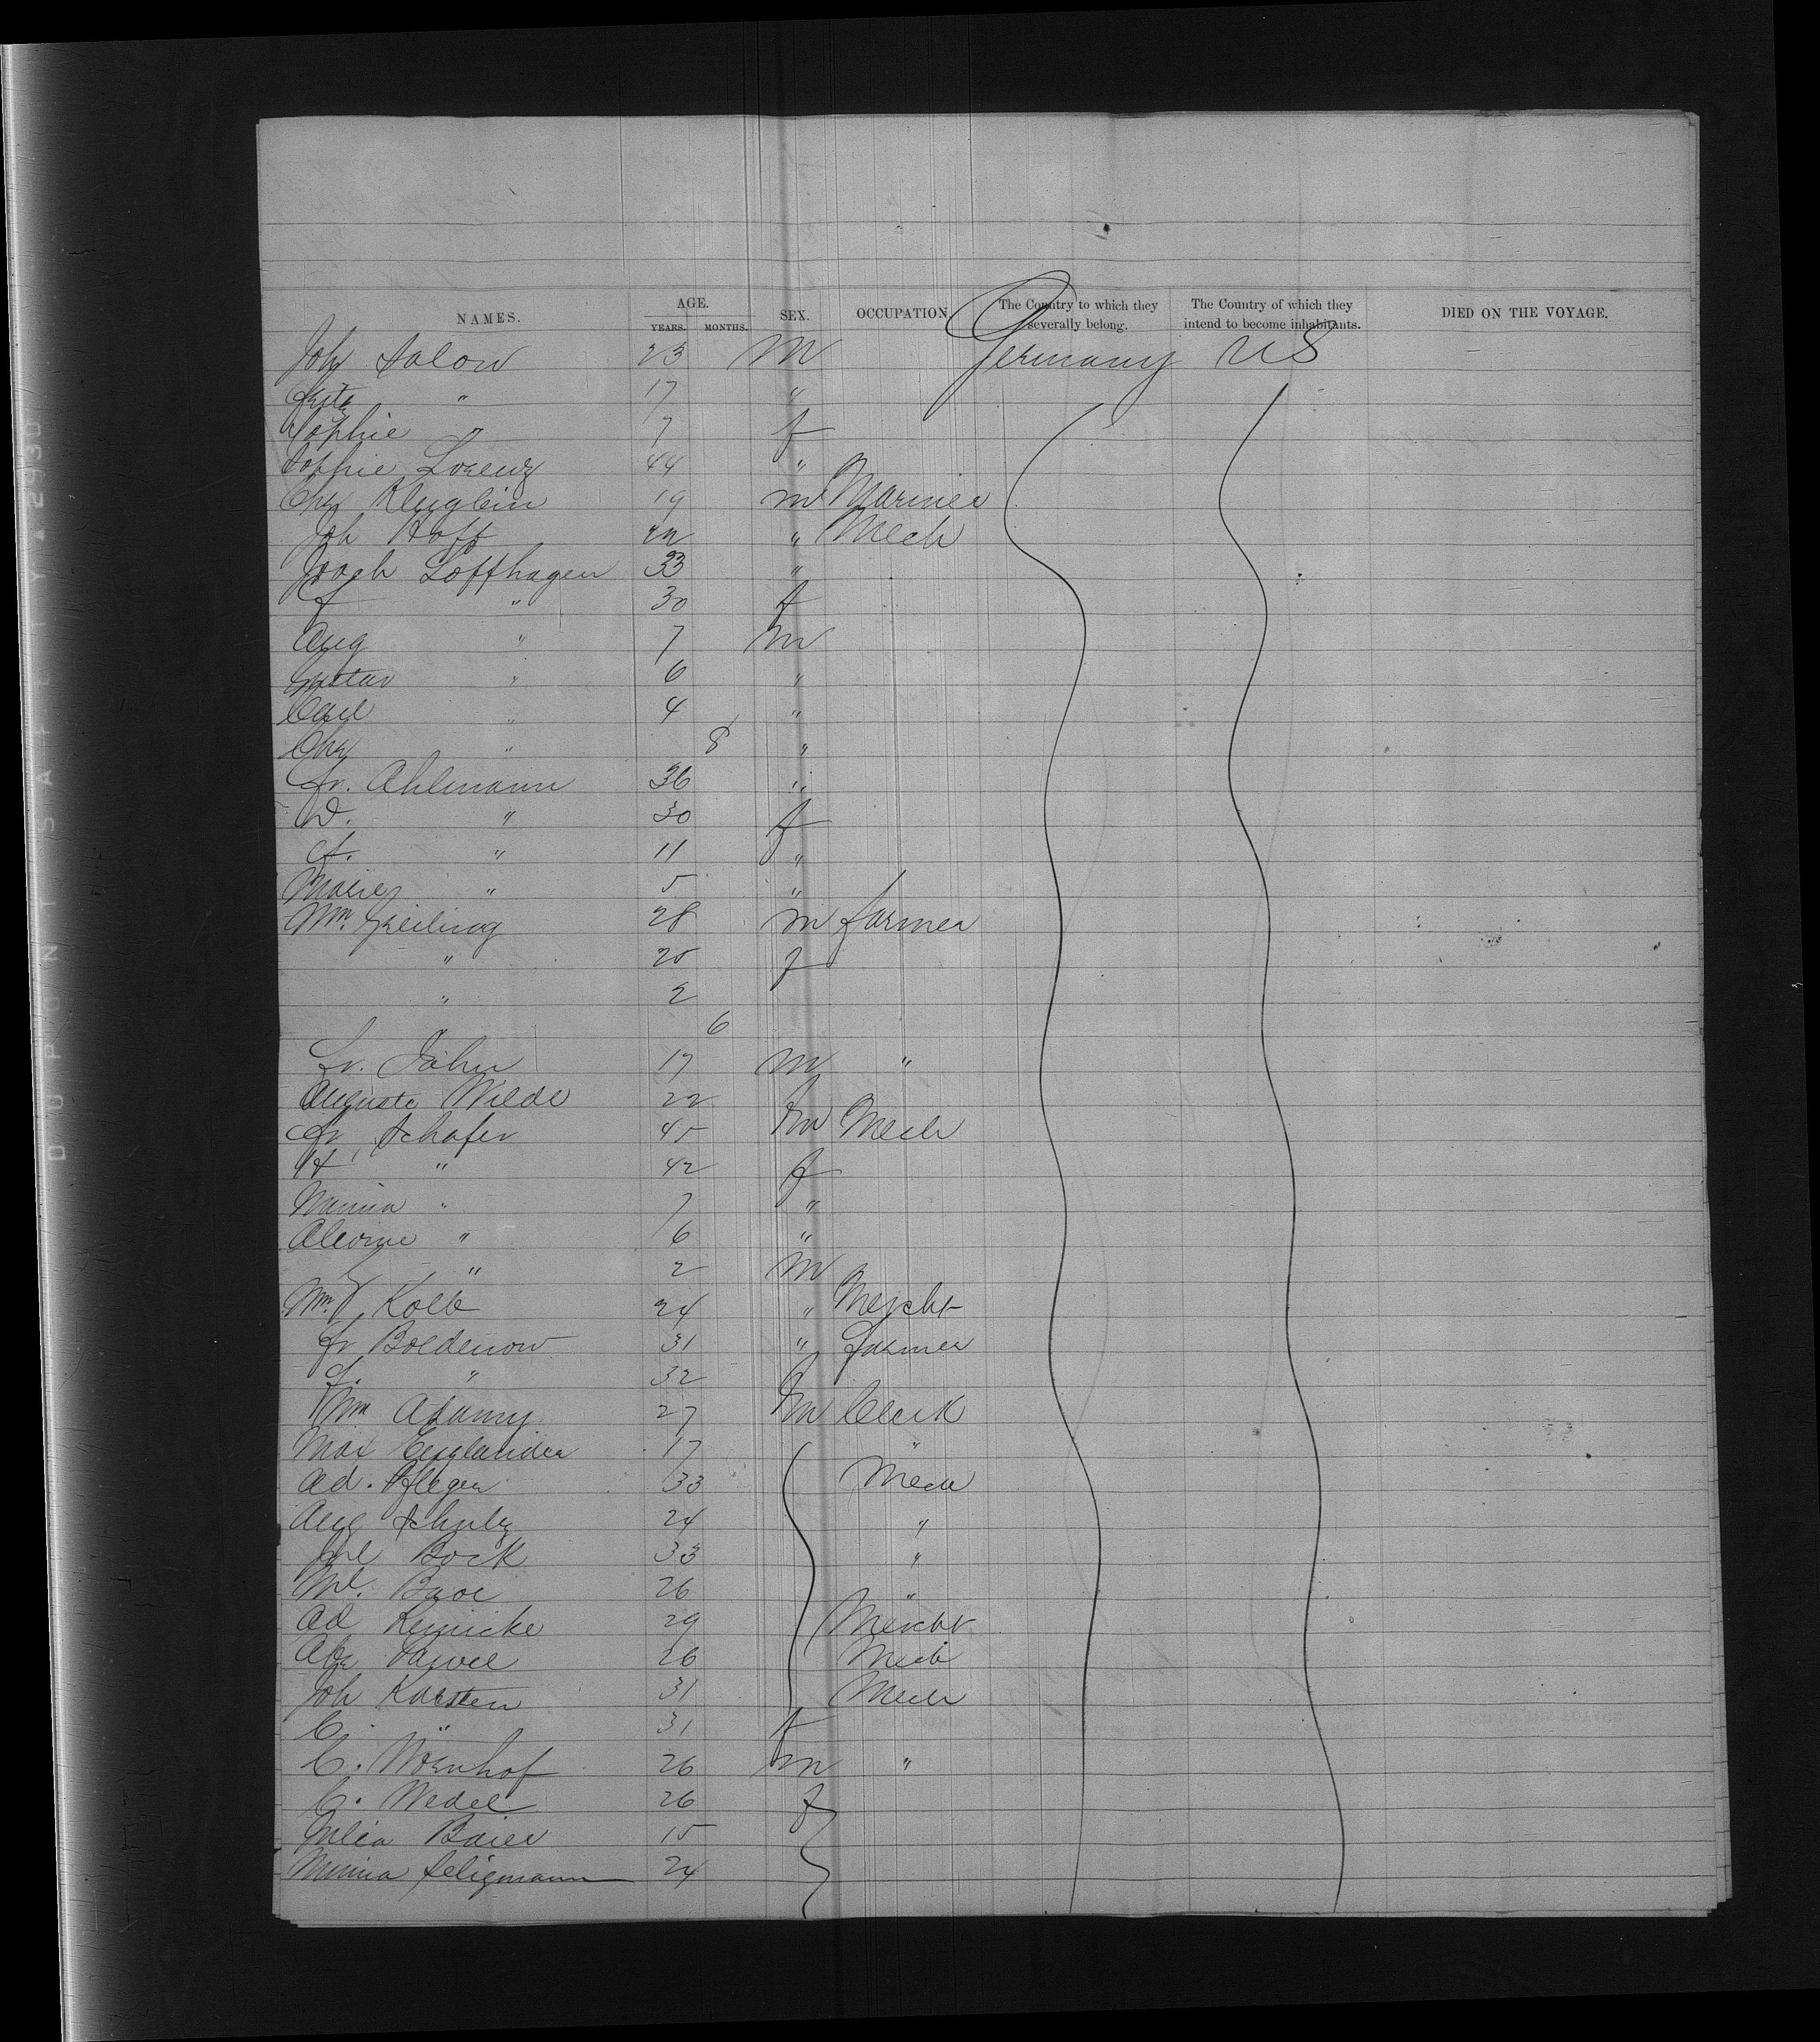 NAMES. AGE. YEARS. MONTHS. SEX. OCCUPATION. The Country to which they severally belong. The Country of which they intend to become inhabitants. DIED ON THE VOYAGE.
Joh Salow 23 M Germany US
" 17 "
Sophie " 7 f
Sophie Lorenz 44 "
Chr 19 m Mariner
Joh Hoff 22 " Mech
Joach Loffhagen 33 "
f " 30 f
Aug " 7 m
Gustav " 6 "
Carl " 4 "
Chr " 8 "
Fr. Ahlmann 36 "
W. " 30 f
" 11 "
Marie " 5 "
Wm. Greiling 28 m farmer
" 20 f
" 2
6
Fr. Jahn 17 m "
Auguste Wilde 22 f
Fr. Schafer 45 m Mech
H " 42 f
Minna " 7 "
" 6 "
" 2 m
Wm. Kolb 24 " Mercht
Fr Boldenow 31 " Farmer
f. " 32 f
Wm Adamy 27 m Clerk
Max Englander 17 "
Ad. Pfleger 33 Mech
Aug Schulz 24 "
Bock 33 "
26 "
Ad Reinicke 29 Mercht
26 Mech
Joh Karsten 31 Mech
C. " 31 f
C. 26 m "
C. Wedel 26 f
Julia Baier 15
Minna Seligmann 24
DUPONT SAFETY 2930